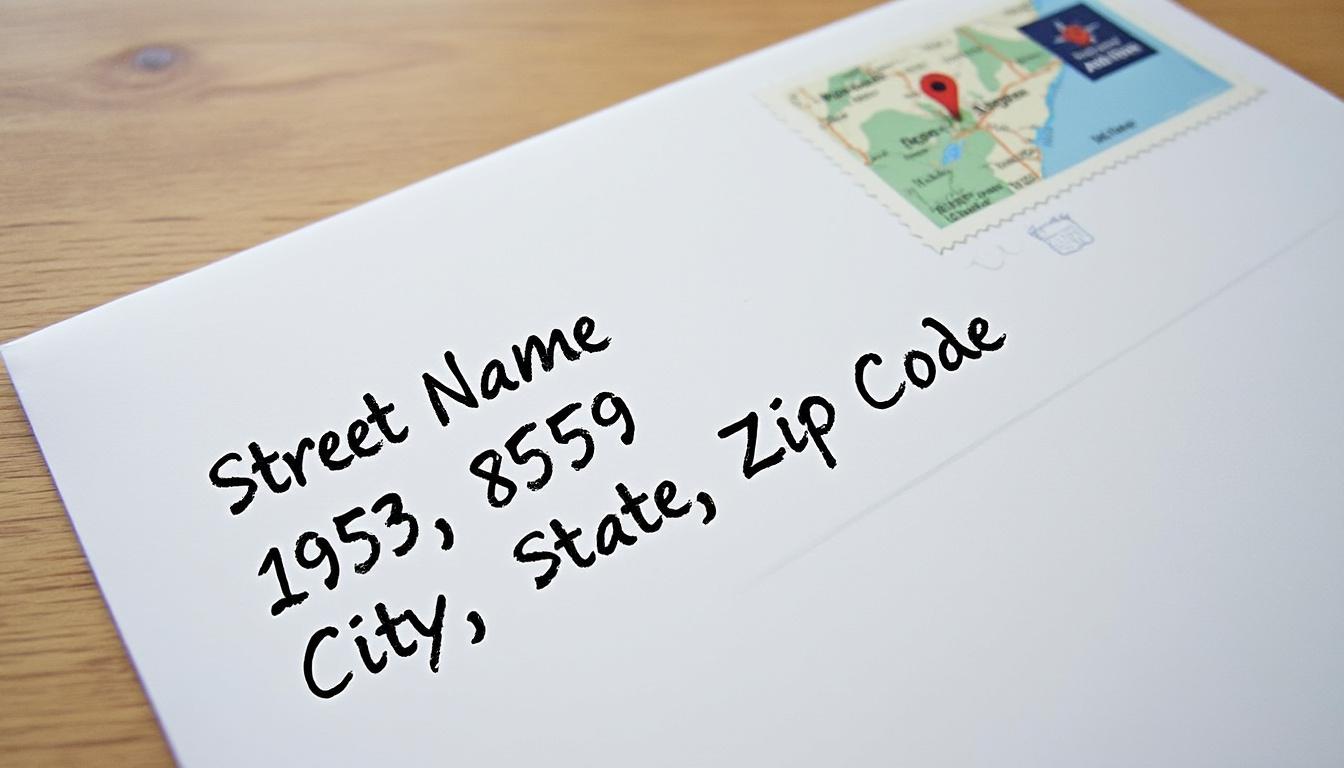 Street Name
1953, 8559
City, State, Zip Code